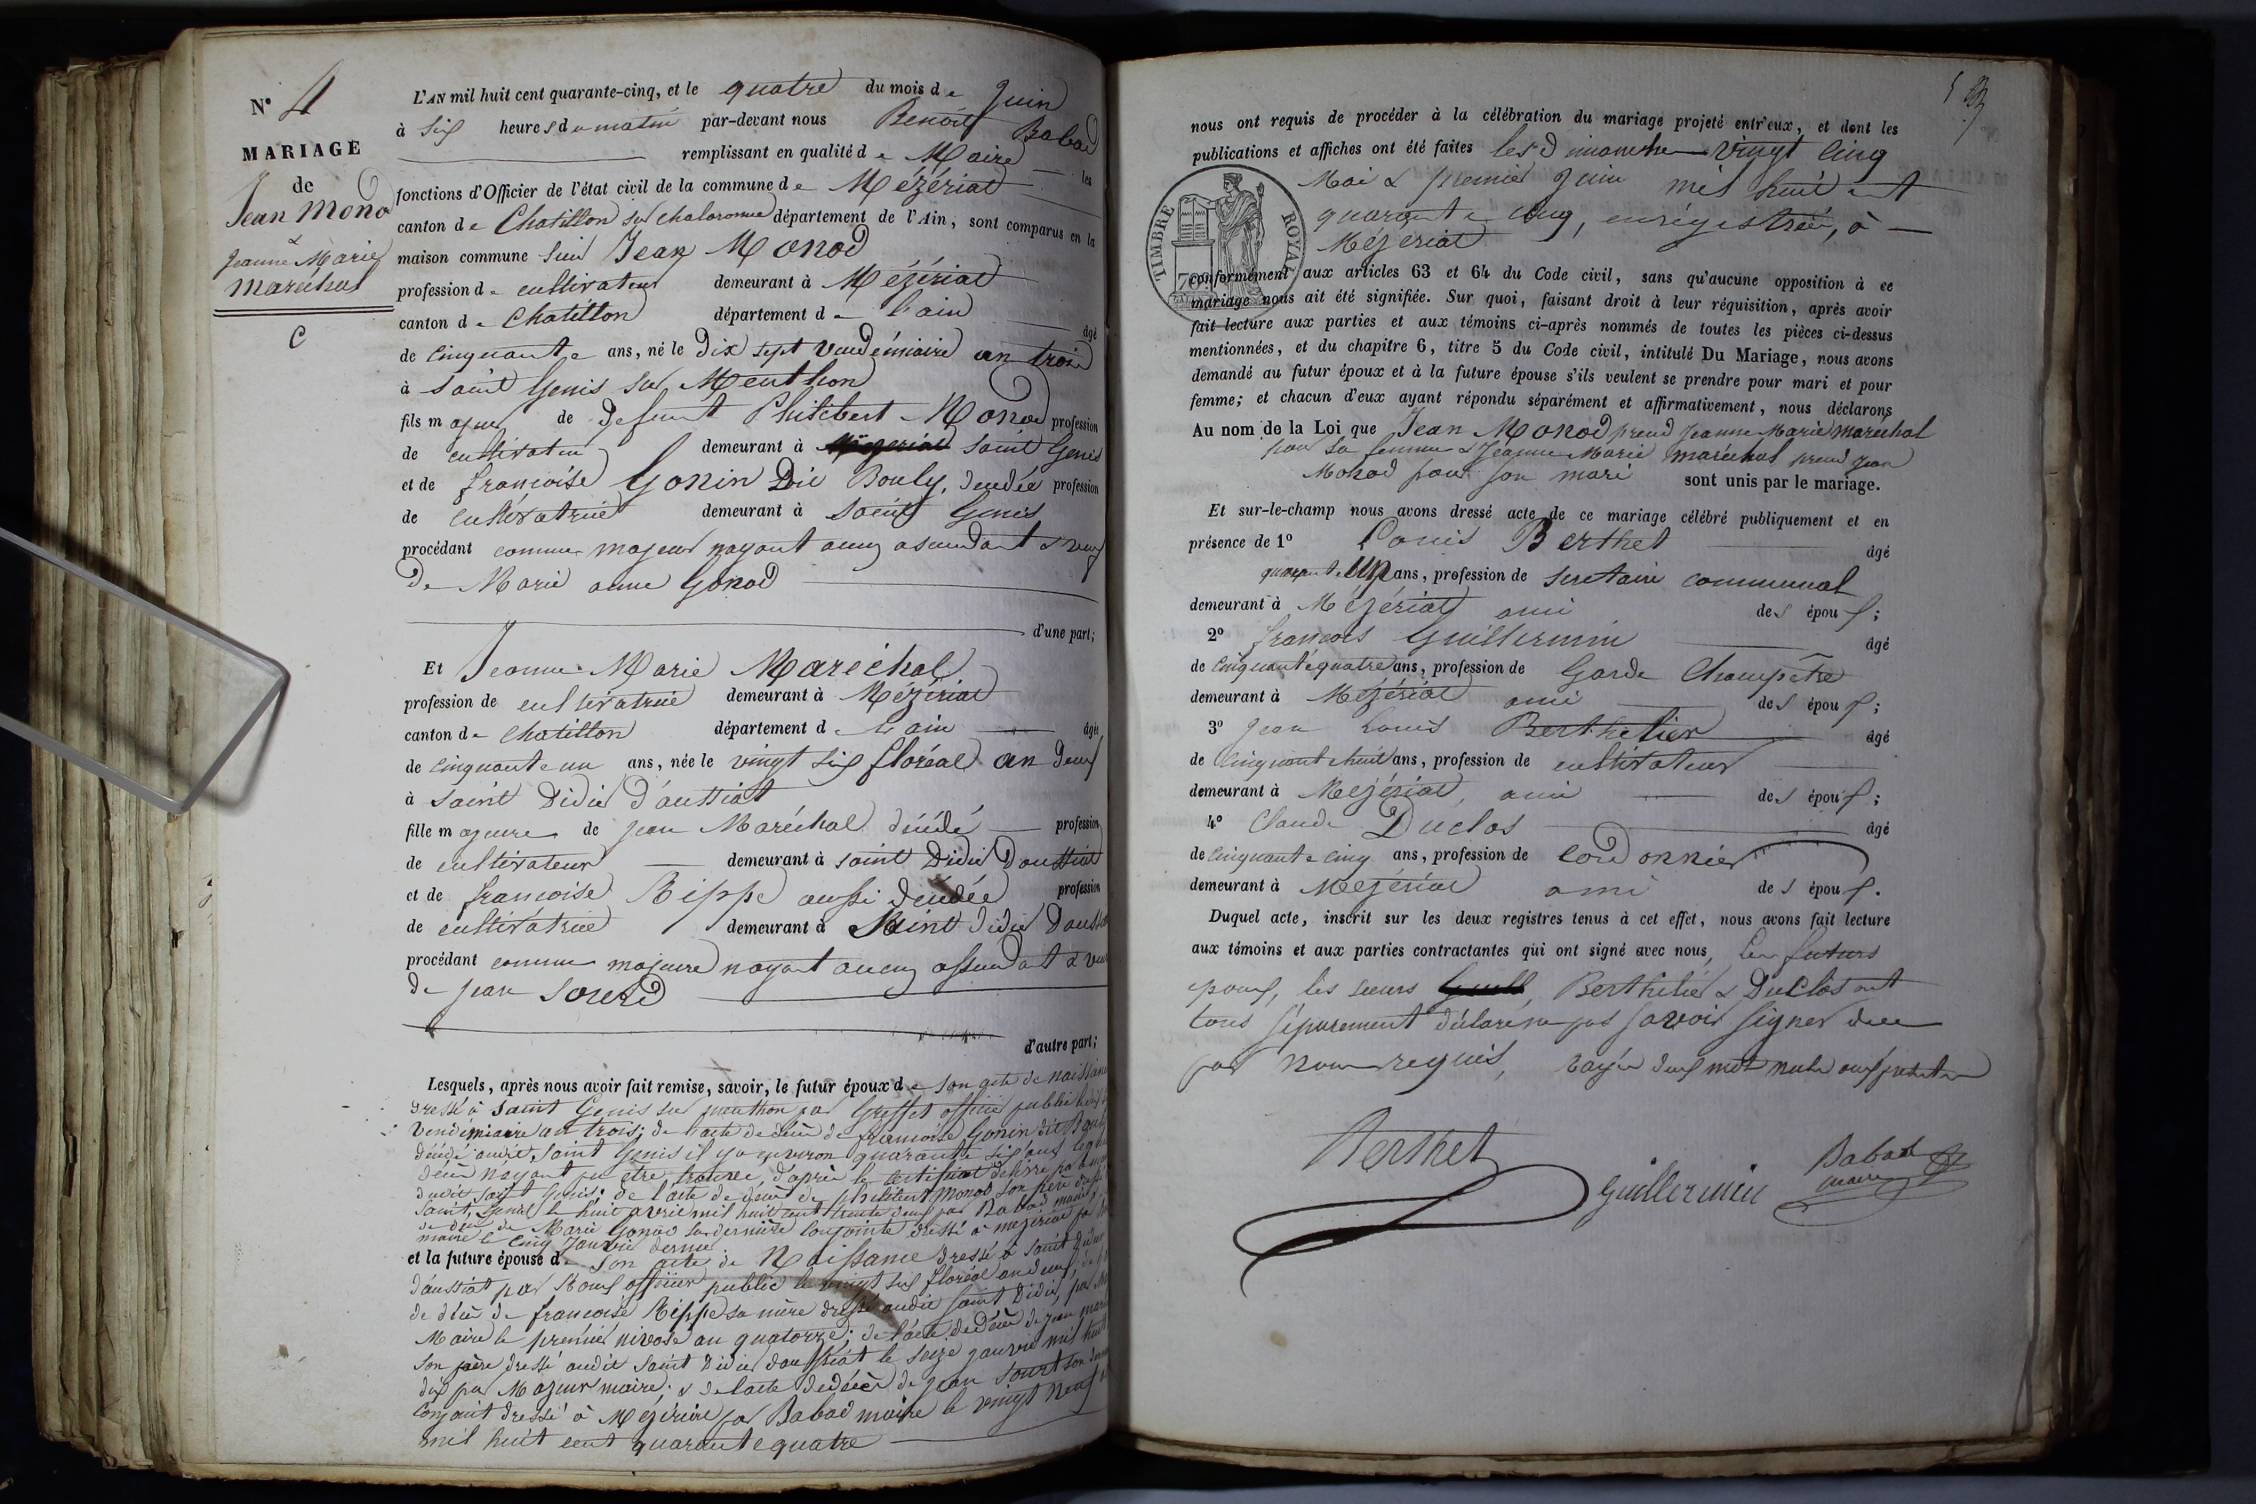 N° 4
MARIAGE
de
Jean Monod
&
Jeanne Marie
Maréchal
C
L'AN mil huit cent quarante-cinq, et le quatre du mois de Juin
à six heures du matin par-devant nous Benoit Babad
remplissant en qualité de Maire les
fonctions d'Officier de l'état civil de la commune de Mézériat
canton de Chatillon sur chalaronne département de l'Ain, sont comparus en la
maison commune sieur Jean Monod
profession de cultivateur demeurant à Mézériat
canton de Chatillon département de l'ain âgé
de cinquante ans, né le Dix sept Vendémiaire an trois
à saint Genis sur Menthon
fils majeur de defunt Philibert Monod profession
de cultivateur demeurant à Mézériat saint Genis
et de francoise Gonin Dit Bouly, décédée profession
de cultivatrice demeurant à saint Genis
procédant comme majeur nayant aucun ascendant & veuf
De Marie anne Gonod
d'une part;
Et Jeanne Marie Maréchal
profession de cultivatrice demeurant à Mézériat
canton de Chatillon département de l'ain âgée
de cinquante un ans, née le vingt six floréal an Deux
à saint Didier d'aussiat
fille majeure de jean Maréchal décédé profession
de cultivateur demeurant à saint Didier Daussiat
et de francoise Rippe aussi décédée profession
de cultivatrice demeurant à Saint Didier Daussiat
procédant comme majeure nayant aucun assendant & veuve
de jean Sourd
d'autre part;
Lesquels, après nous avoir fait remise, savoir, le futur époux de son acte de naissance
dressé à saint Genis sur menthon par Greffet officier public le dix sept
Vendémiaire an trois; de l'acte de décès de francoise Gonin dit Bouly
décédé audit saint Genis il y a environ quarante six ans lequel
décès nayant pu être trouvé, d'après le certificat délivré par
dudit saint Genis; de l'acte de décès de philibert Monod son père
saint Genis le huit avril mil huit cent trente deux par Babad maire
de décès de Marie Gonod sa dernière conjointe dressé à mézériat par
maire le cinq Janvier dernier
et la future épouse de son acte de Naissance dressé à saint Didier
d'aussiat par officier public le vingt six floréal an deux, de
de décès de francoise Rippe sa mère dressé audit saint Didier, par
Maire le premier nivose an quatorze; de l'acte de décès de jean maréchal
son père dressé audit saint Didier daussiat le seize janvier mil huit
dix par Mazuir maire; & de l'acte de décès de jean Sourd son dernier
conjoint dressé à Mézériat par Babad maire le vingt neuf
mil huit cent quarante quatre
nous ont requis de procéder à la célébration du mariage projeté entr'eux, et dont les
publications et affiches ont été faites les Dimanche vingt cinq
Mai & premier Juin mil huit cent
quarante cinq, enrégistrées, à
Mézériat
TIMBRE ROYAL
conformément aux articles 63 et 64 du Code civil, sans qu'aucune opposition à ce
mariage nous ait été signifiée. Sur quoi, faisant droit à leur réquisition, après avoir
fait lecture aux parties et aux témoins ci-après nommés de toutes les pièces ci-dessus
mentionnées, et du chapitre 6, titre 5 du Code civil, intitulé Du Mariage, nous avons
demandé au futur époux et à la future épouse s'ils veulent se prendre pour mari et pour
femme; et chacun d'eux ayant répondu séparément et affirmativement, nous déclarons
Au nom de la Loi que Jean Monod prend Jeanne Marie maréchal
pour sa femme & Jéanne Marie maréchal prend Jean
Monod pour son mari sont unis par le mariage.
Et sur-le-champ nous avons dressé acte de ce mariage célébré publiquement et en
présence de 1° Louis Berthet âgé
quarante un ans, profession de secretaire communal
demeurant à Mézériat ami des époux;
2° francois Guillermin âgé
de cinquante quatre ans, profession de Garde Champêtre
demeurant à Mézériat ami des époux;
3° Jean Louis Berthelier âgé
de cinquante huit ans, profession de cultivateur
demeurant à Mézériat, ami des époux;
4° Claude Duclos âgé
de cinquante cinq ans, profession de cordonnier
demeurant à Mézériat ami des époux.
Duquel acte, inscrit sur les deux registres tenus à cet effet, nous avons fait lecture
aux témoins et aux parties contractantes qui ont signé avec nous, Les futurs
époux, les sieurs Guill, Berthelié & Duclos ont
tous séparement déclaré ne pas savoir signer de ce
par nous requis, rayés deux mots nuls
Berthet
Guillermin
Babad
maire